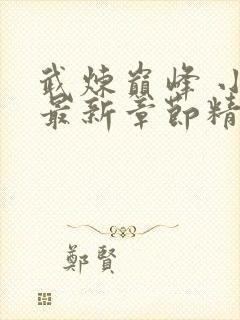 武煉巔峰 小
最新章節精
鄭賢